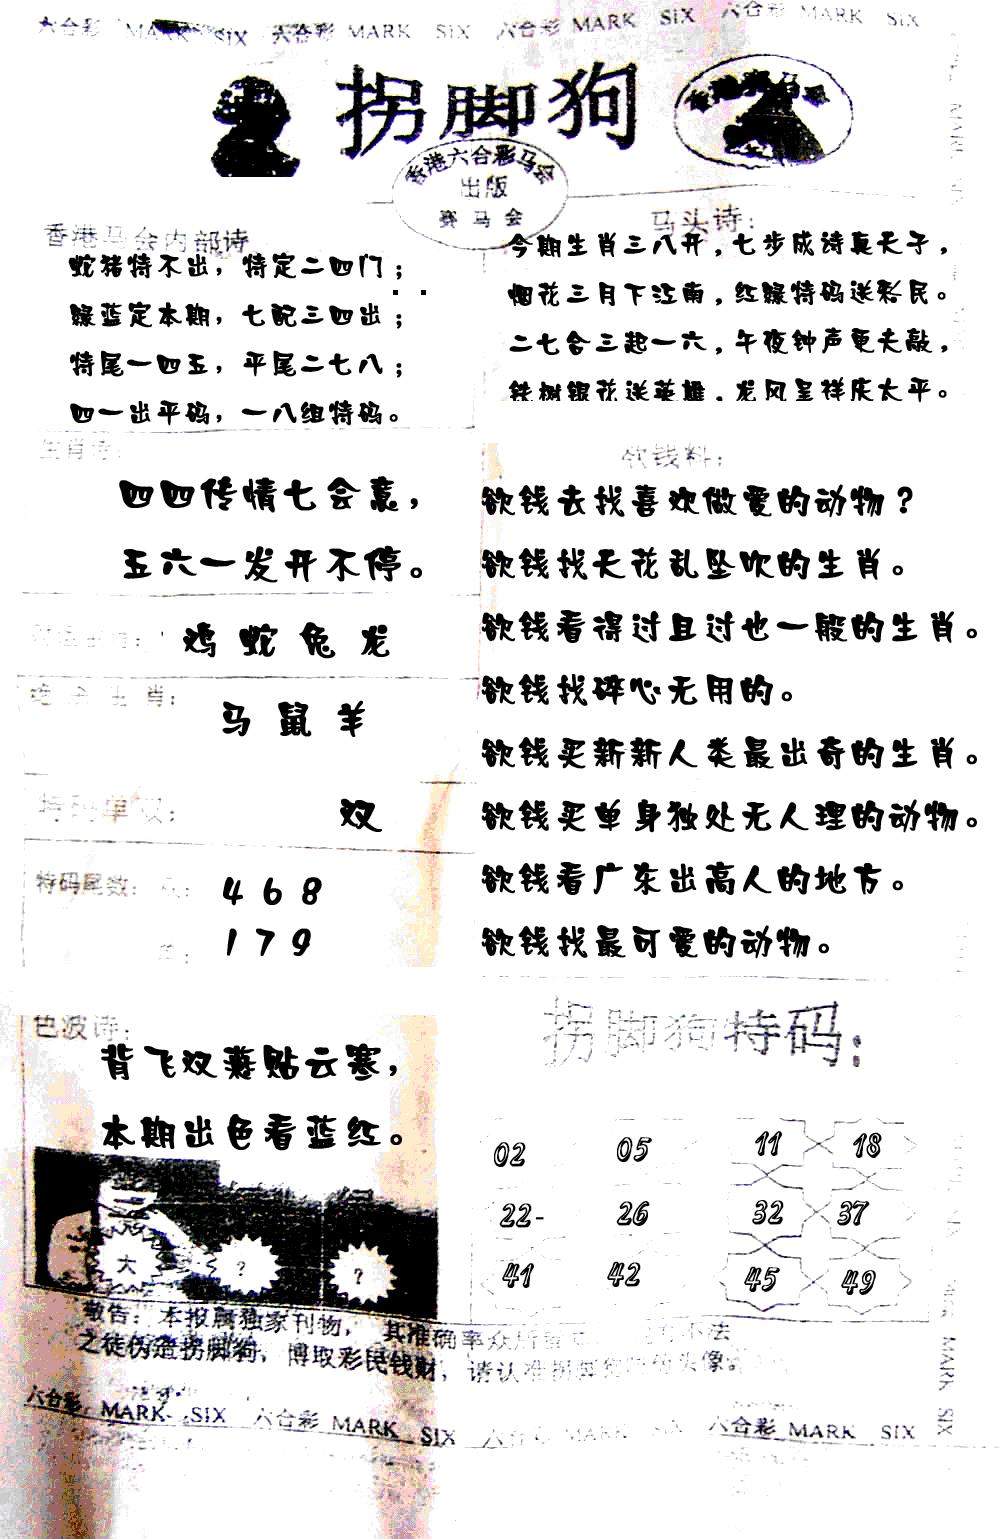 六合彩 MARK SIX 六合彩 MARK SIX 六合彩 MARK SIX 六合彩 MARK SIX
拐脚狗
香港六合彩马会
出版
赛马会
香港马会内部诗
蛇猪特不出，特定二四门；
绿蓝定本期，七配三四出；
特尾一四五，平尾二七八；
四一出平码，一八组特码。
马头诗：
今期生肖三八开，七步成诗真天子，
烟花三月下江南，红绿特码送彩民。
二七合三起一六，午夜钟声更夫敲，
铁树银花送英雄，龙凤呈祥庆太平。
生肖诗：
四四传情七会意，
五六一发开不停。
鸡 蛇 兔 龙
绝杀生肖：
马 鼠 羊
特码单双：
双
特码尾数：
4 6 8
1 7 9
欲钱料：
欲钱去找喜欢做爱的动物？
欲钱找天花乱坠吹的生肖。
欲钱看得过且过也一般的生肖。
欲钱找碎心无用的。
欲钱买新新人类最出奇的生肖。
欲钱买单身独处无人理的动物。
欲钱看广东出高人的地方。
欲钱找最可爱的动物。
色波诗：
背飞双燕贴云寒，
本期出色看蓝红。
大 ? ?
拐脚狗特码：
02 05 11 18
22- 26 32 37
41 42 45 49
敬告：本报属独家刊物，其准确率众所 不法
之徒伪造拐脚狗，博取彩民钱财，请认准拐脚狗 头像
六合彩 MARK SIX 六合彩 MARK SIX 六合彩 MARK SIX 六合彩 MARK SIX
MARK SIX